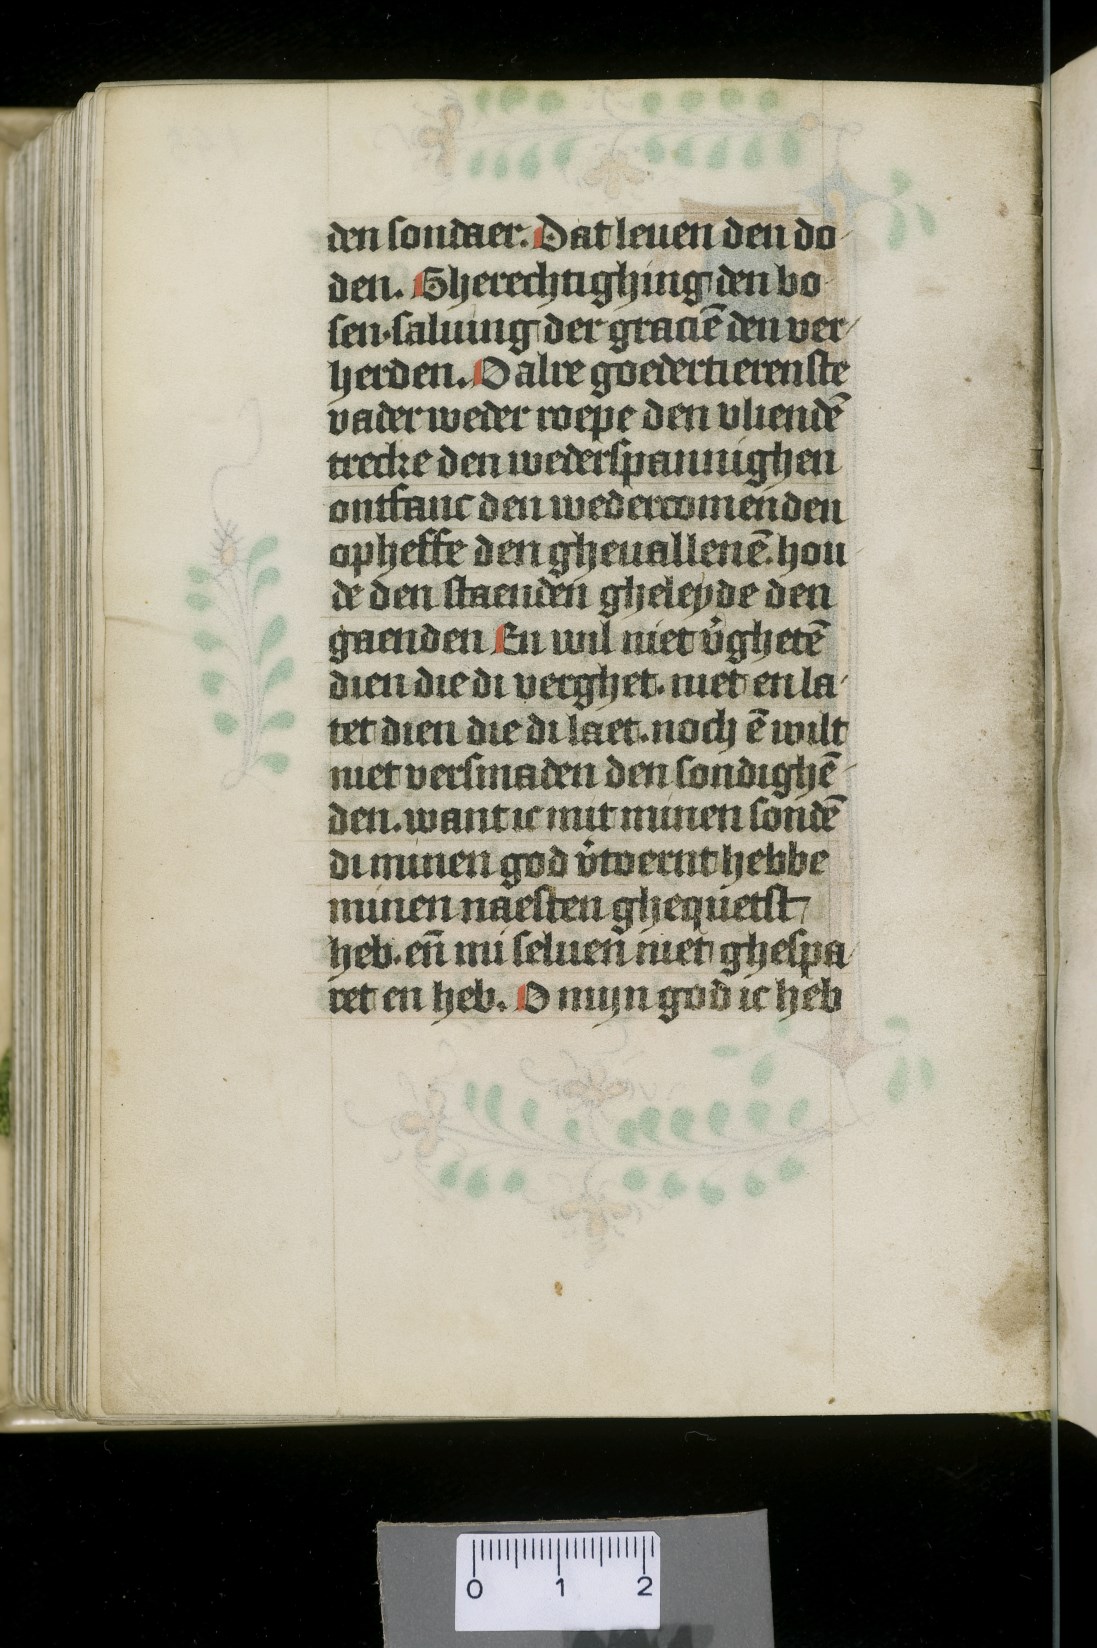 den sondaer. Dat leuen den do
den. Gherechtighing den bo
sen. saluing der graciē den ver/
herden. O alre goedertierenste
vader weder roepe den vliendē
trecke den wederspannighen
ontfanc den wedercomenden
opheffe den gheuallenē. hou
de den staenden gheleyde den
gaenden En wil niet v̄ghetē
dien die di verghet. niet en la/
tet dien die di laet. noch ē wilt
niet versmaden den sondighē/
den. want ic mit minen sondē
di minen god v̄toernt hebbe
minen naesten ghequetst
heb. en̄ mi seluen niet ghespa/
ret en heb. O mijn god ic heb
0 1 2